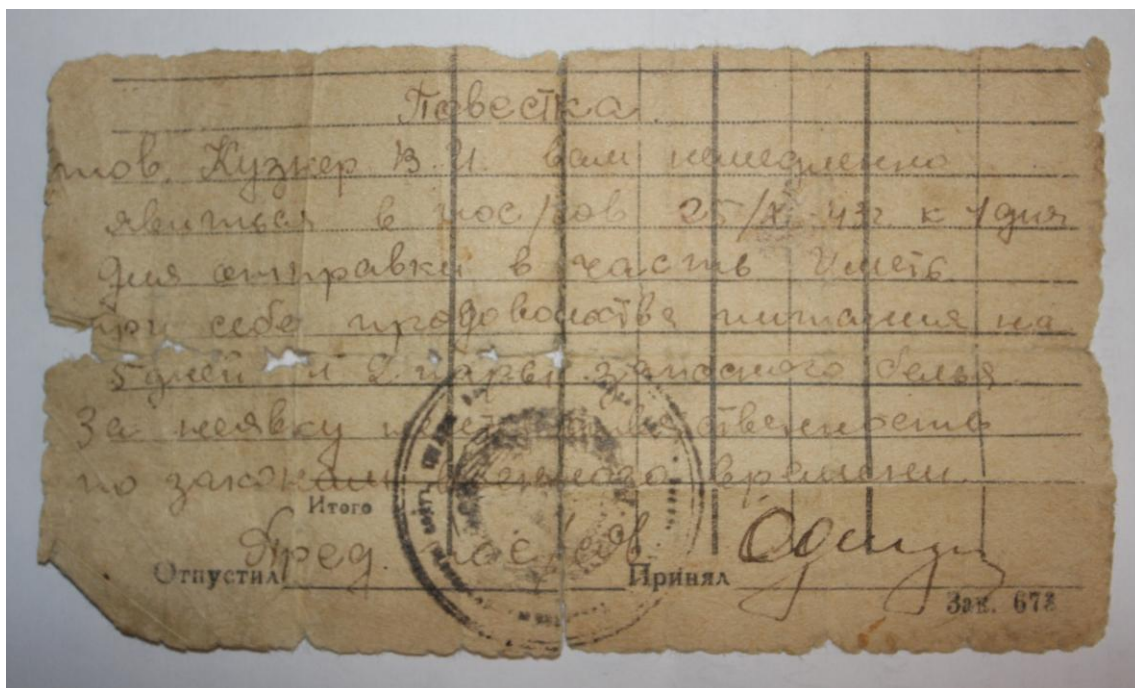 Повестка.
тов. Кузнер В И. вам немедленно
явиться в пос/сов 25/X 43г. к 1 дня
для отправки в часть Иметь
при себе продовольства питания на
5 дней и 2 пары запасного белья
За неявку ответственность
по законам военного времени.
Итого
Пред. пос/сов.
Отпустил Принял
Зак. 673